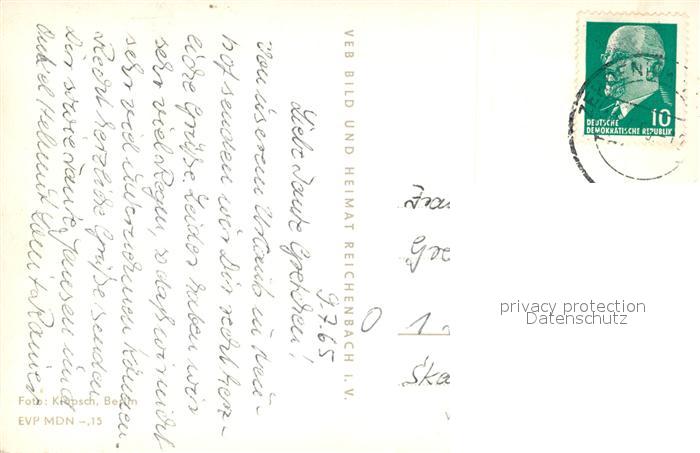 9.7.65
Liebe Tante Gretchen!
Von unserem Urlaub in Neu-
hof senden wir Dir recht herz-
liche Grüße. Leider haben wir
sehr viel Regen, so daß wir nicht
sehr viel unternehmen können.
Recht herzliche Grüße senden
Dir sowie Tante Jensen und
Onkel Helmut
VEB BILD UND HEIMAT REICHENBACH i. V.
Foto: Klapsch, Berlin
EVP MDN -,15
10
DEUTSCHE
DEMOKRATISCHE REPUBLIK
Frau
Gre
1
Ska
privacy protection
Datenschutz